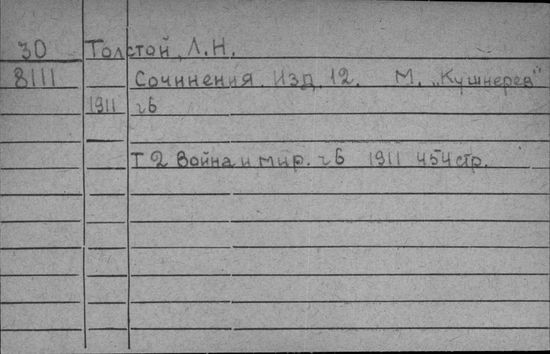 30 Толстой, Л.Н.
8111 Сочинения. Изд. 12. М. „Кушнерев"
1911 ч6
Т 2 Война и мир. ч6 1911 454стр.